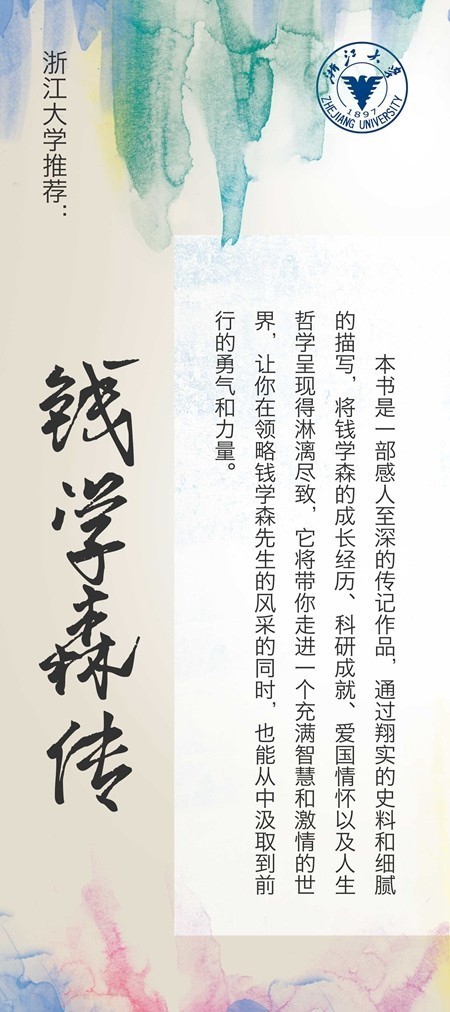 浙江大学推荐：
浙江大学
1897
ZHEJIANG UNIVERSITY
钱学森传
本书是一部感人至深的传记作品，通过翔实的史料和细腻
的描写，将钱学森的成长经历、科研成就、爱国情怀以及人生
哲学呈现得淋漓尽致，它将带你走进一个充满智慧和激情的世
界，让你在领略钱学森先生的风采的同时，也能从中汲取到前
行的勇气和力量。